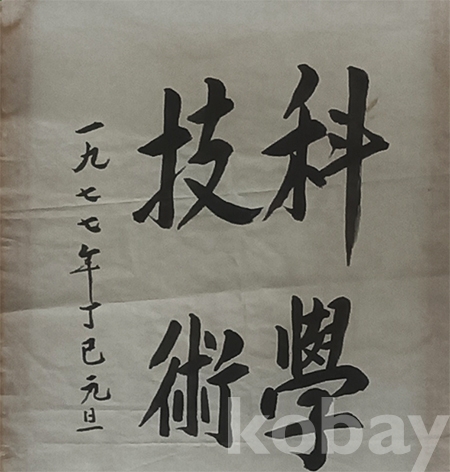 科學
技術
一九七七年丁巳元旦
kobay